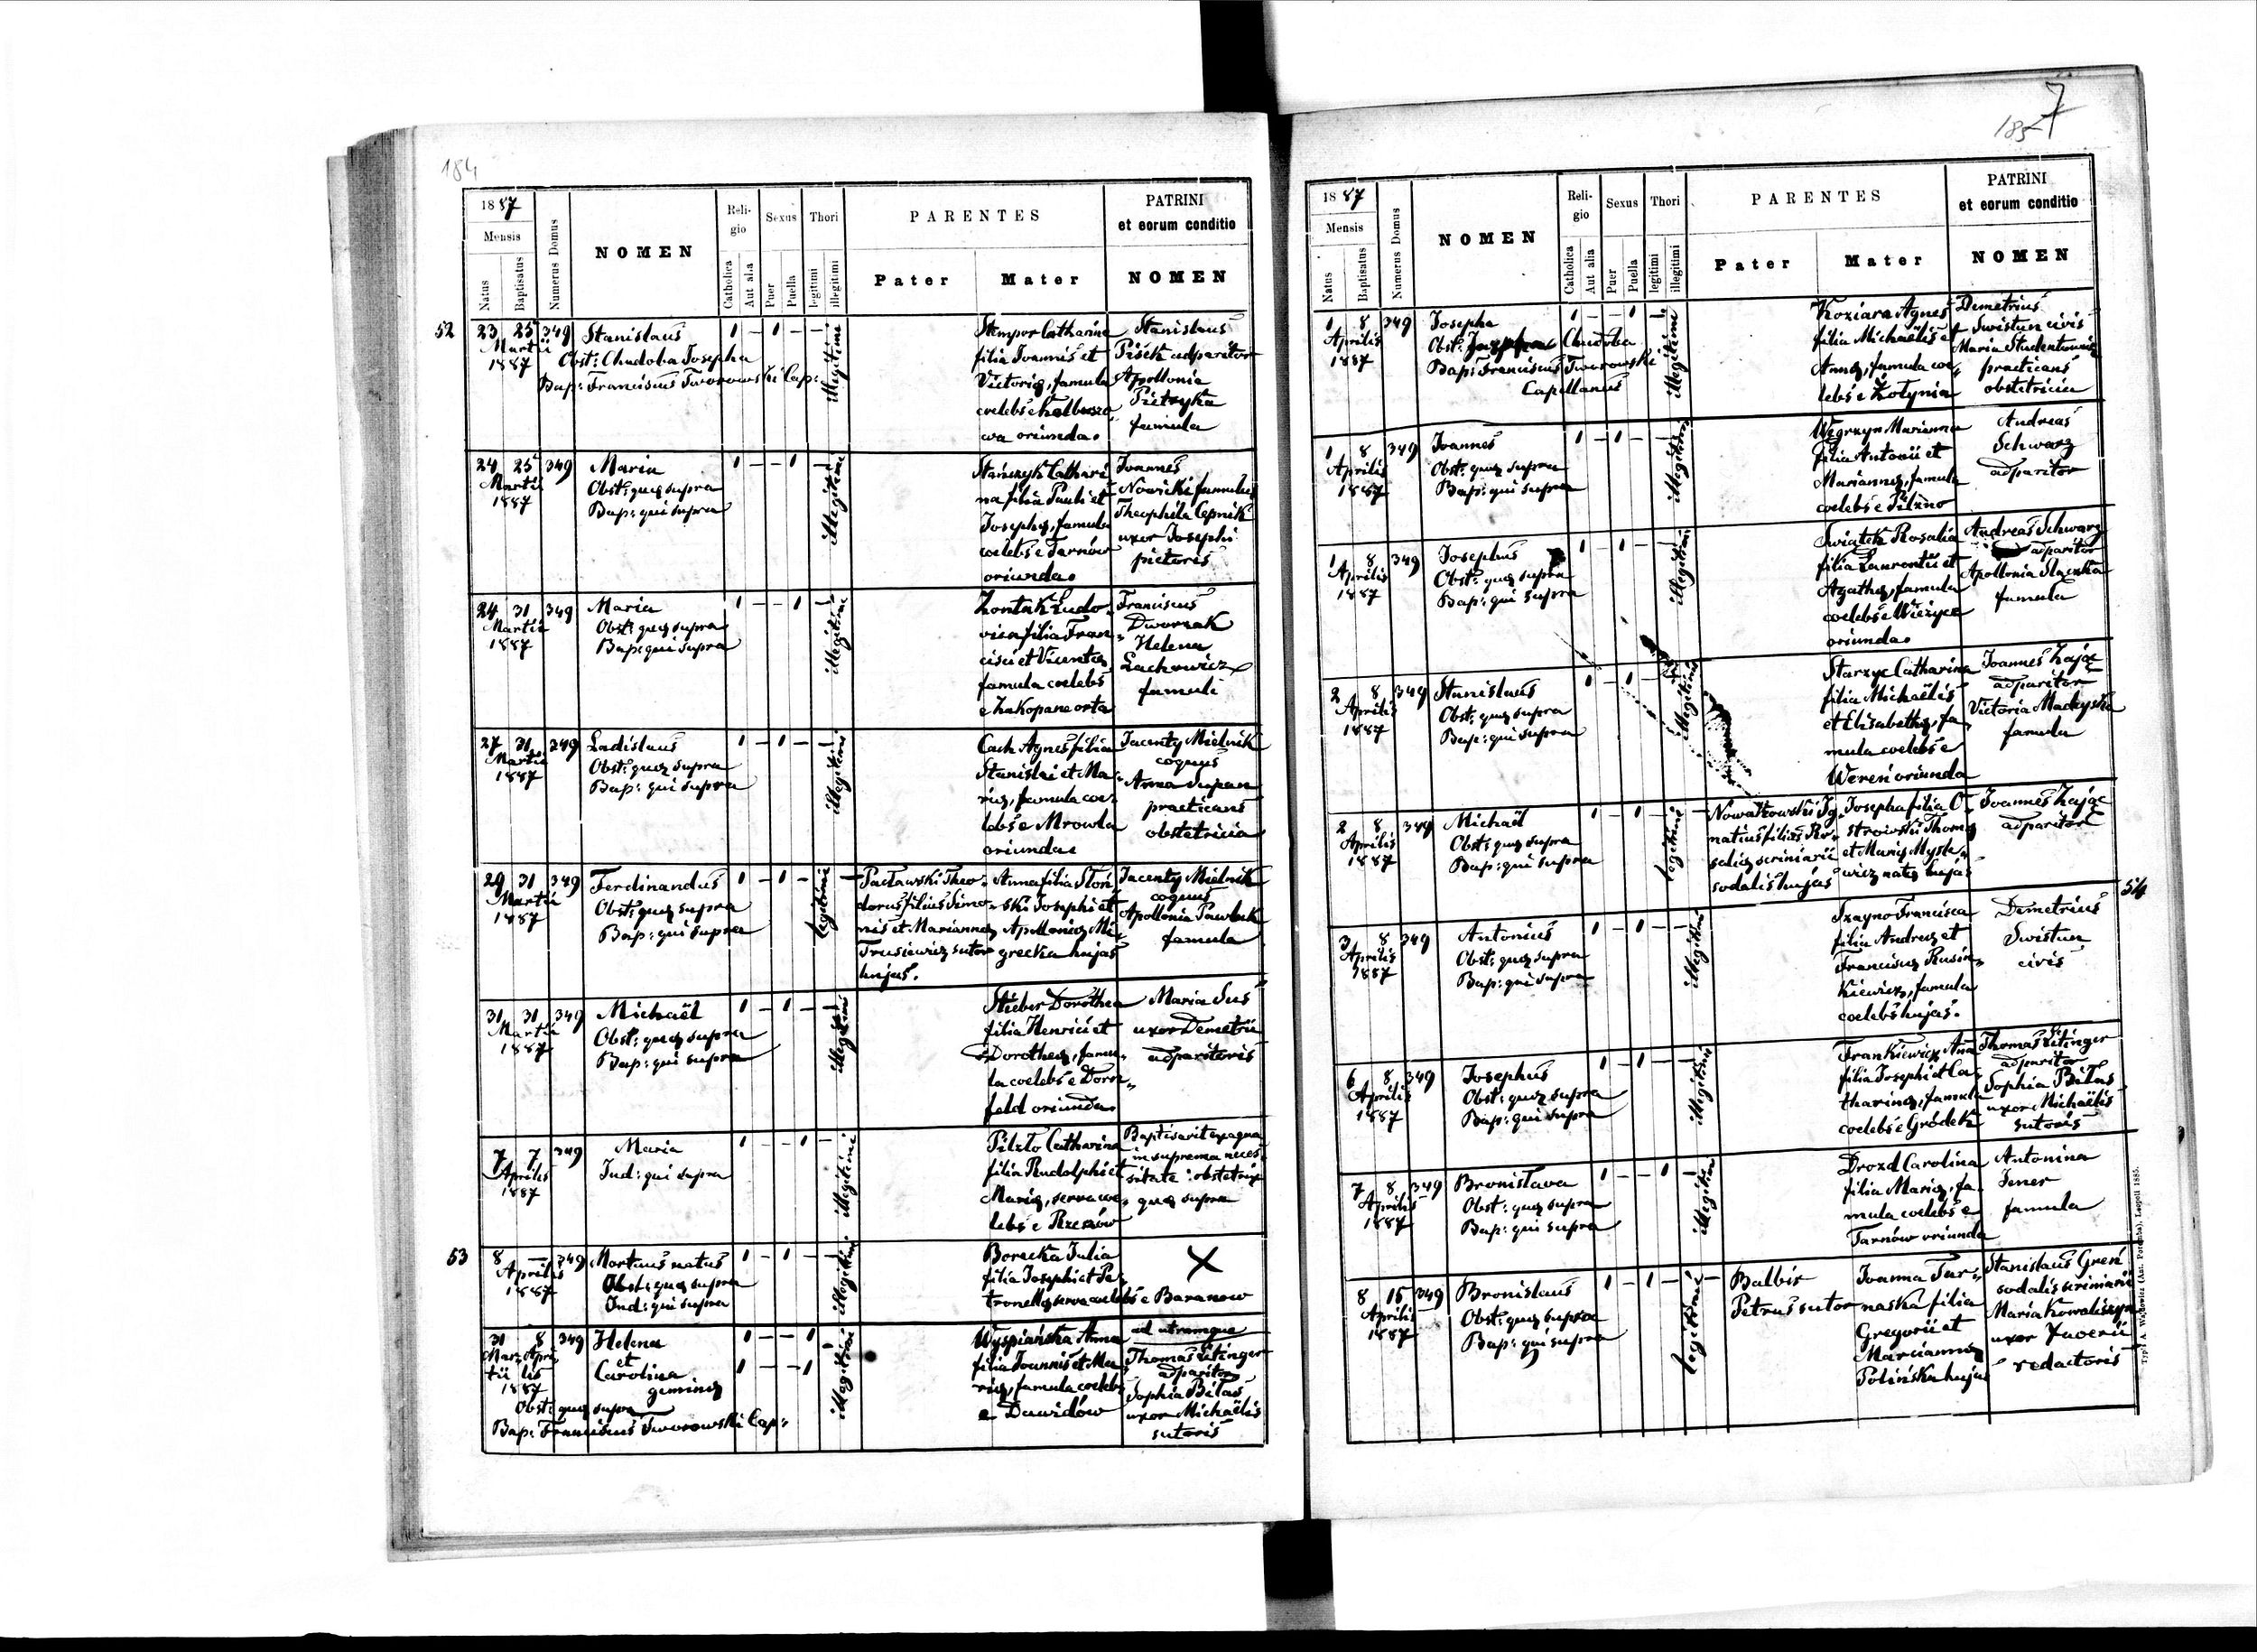 184
1887
Mensis
Natus
Baptisatus
Numerus Domus
NOMEN
Reli-
gio
Catholica
Aut alia
Sexus
Puer
Puella
Thori
legitimi
illegitimi
PARENTES
Pater
Mater
PATRINI
et eorum conditio
NOMEN
52
23 25 349
Martii
1887
Stanislaus
Obst: Chudoba Josepha
Bap: Franciscus Tworowski Cap:
1 – 1 – –
illegitimi
Stempor Catharina
filia Joannis et
Victoriæ, famula
coelebs e Kolbuszo
wa oriunda.
Stanislaus
Pisck adparitor
Apollonia
Pietzyka
famula
24 25 349
Martii
1887
Maria
Obst: quæ supra
Bap: qui supra
1 – – 1 –
illegitimi
Stańczyk Cathari
na filia Pauli et
Josephæ, famula
coelebs e Tarnów
oriunda.
Joannes
Nowicki famulus
Theophila Cepnik
uxor Josephi
pictoris
24 31 349
Martii
1887
Maria
Obst: quæ supra
Bap: qui supra
1 – – 1 –
illegitimi
Zontak Ludo
vica filia Fran-
cisci et Vicentæ
famula coelebs
e Zakopane orta
Franciscus
Dworzak
Helena
Lachowicz
famuli
27 31 349
Martii
1887
Ladislaus
Obst: quæ supra
Bap: qui supra
1 – 1 – –
illegitimi
Cach Agnes filia
Stanislai et Ma-
riæ, famula coe-
lebs e Mrowla
oriunda.
Jacenty Mielnik
coquus
Anna Supan
practicans
obstetricia
29 31 349
Martii
1887
Ferdinandus
Obst: quæ supra
Bap: qui supra
1 – 1 –
legitimi
–
Pacławski Theo-
dorus filius Simo-
nis et Mariannæ
Trusiewicz sutor
hujas.
Anna filia Słoń-
ski Josephi et
Apolloniæ Mi-
grecka hujas
Jacenty Mielnik
coquus
Apollonia Pawluk
famula
31 31 349
Martii
1887
Michaël
Obst: quæ supra
Bap: qui supra
1 – 1 – –
illegitimi
Stieber Dorothea
filia Henrici et
Dorotheæ, famu-
la coelebs e Dorn-
feld oriunda
Maria Sus
uxor Demetrii
adparitoris
7 7 349
Aprilis
1887
Maria
Ind: qui supra
1 – – 1 –
illegitimi
Pilzto Catharina
filia Rudolphi et
Mariæ, serva coe-
lebs e Rzeszów
Baptisavit ex aqua
in suprema neces-
sitate: obstetrix
quæ supra
53
8 – 349
Aprilis
1887
Mortuus natus
Obst: quæ supra
Ind: qui supra
1 – 1 – –
illegitimi
Borecka Julia
filia Josephi et Pe-
tronellæ serva coelebs e Baranow
X
31 8 349
Mar- Apri
tii lis
1887
Helena
et
Carolina
geminæ
Obst: quæ supra
Bap: Franciscus Tworowski Cap:
1 – – 1
1 – – 1
illegitimi
Wyspiańska Anna
filia Joannis et Ma-
riæ, famula coelebs
e Dawidów
ad utramque
Thomas Etinger
adparitor
Sophia Bilas
uxor Michaëlis
sutoris
7
185
1887
Mensis
Natus
Baptisatus
Numerus Domus
NOMEN
Reli-
gio
Catholica
Aut alia
Sexus
Puer
Puella
Thori
legitimi
illegitimi
PARENTES
Pater
Mater
PATRINI
et eorum conditio
NOMEN
1 8 349
Aprilis
1887
Josepha
Obst: Josepha Chudoba
Bap: Franciscus Tworowski
Capellanus
1 – – 1 –
illegitimi
Koziara Agnes
filia Michaëlis et
Annæ, famula coe-
lebs e Żołynia
Demetrius
Swistun civis
Maria Studentowicz
practicans
obstetricia
1 8 349
Aprilis
1887
Joannes
Obst: quæ supra
Bap: qui supra
1 – 1 – –
illegitimi
Węgrzyn Marianna
filia Antonii et
Mariannæ, famula
coelebs e Pilzno
Andreas
Schwarz
adparitor
1 8 349
Aprilis
1887
Josephus
Obst: quæ supra
Bap: qui supra
1 – 1 – –
illegitimi
Swiatek Rosalia
filia Laurentii et
Agathæ, famula
coelebs e Wieżyce
oriunda.
Andreas Schwarz
adparitor
Apollonia Slaczka
famula
2 8 349
Aprilis
1887
Stanislaus
Obst: quæ supra
Bap: qui supra
1 – 1 –
illegitimi
Starzyc Catharina
filia Michaëlis
et Elisabethæ, fa-
mula coelebs e
Wereń oriunda
Joannes Zając
adparitor
Victoria Mackyska
famula
2 8 349
Aprilis
1887
Michaël
Obst: quæ supra
Bap: qui supra
1 – 1 –
legitimi
–
Nowakowski Ig-
natius filius Ro-
saliæ scriniarii
sodalis hujas
Josepha filia O-
strowski Thomæ
et Mariæ Mysle-
wicz natæ hujas
Joannes Zając
adparitor
54
3 8 349
Aprilis
1887
Antonius
Obst: quæ supra
Bap: qui supra
1 – 1 – –
illegitimi
Szayno Francisca
filia Andreæ et
Franciscæ Rusin-
kiewicz, famula
coelebs hujas.
Demetrius
Swistun
civis
6 8 349
Aprilis
1887
Josephus
Obst: quæ supra
Bap: qui supra
1 – 1 – –
illegitimi
Frankiewicz Anna
filia Josephi et Ca-
tharinæ, famula
coelebs e Gródek
Thomas Etinger
adparitor
Sophia Bilas
uxor Michaëlis
sutoris
7 8 349
Aprilis
1887
Bronislava
Obst: quæ supra
Bap: qui supra
1 – – 1 –
illegitimi
Drozd Carolina
filia Mariæ, fa-
mula coelebs e
Tarnów oriunda
Antonina
Jener
famula
8 15 349
Aprilis
1887
Bronislaus
Obst: quæ supra
Bap: qui supra
1 – 1 –
legitimi
–
Balbir
Petrus sutor
Joanna Tur-
naska filia
Gregorii et
Mariannæ
Polińska hujas
Stanislaus Greń
sodalis scriniarii
Maria Kowaliszyn
uxor Xaverii
redactoris
Typ. A. Wajdowicz (Ant. Poremba), Leopoli 1885.